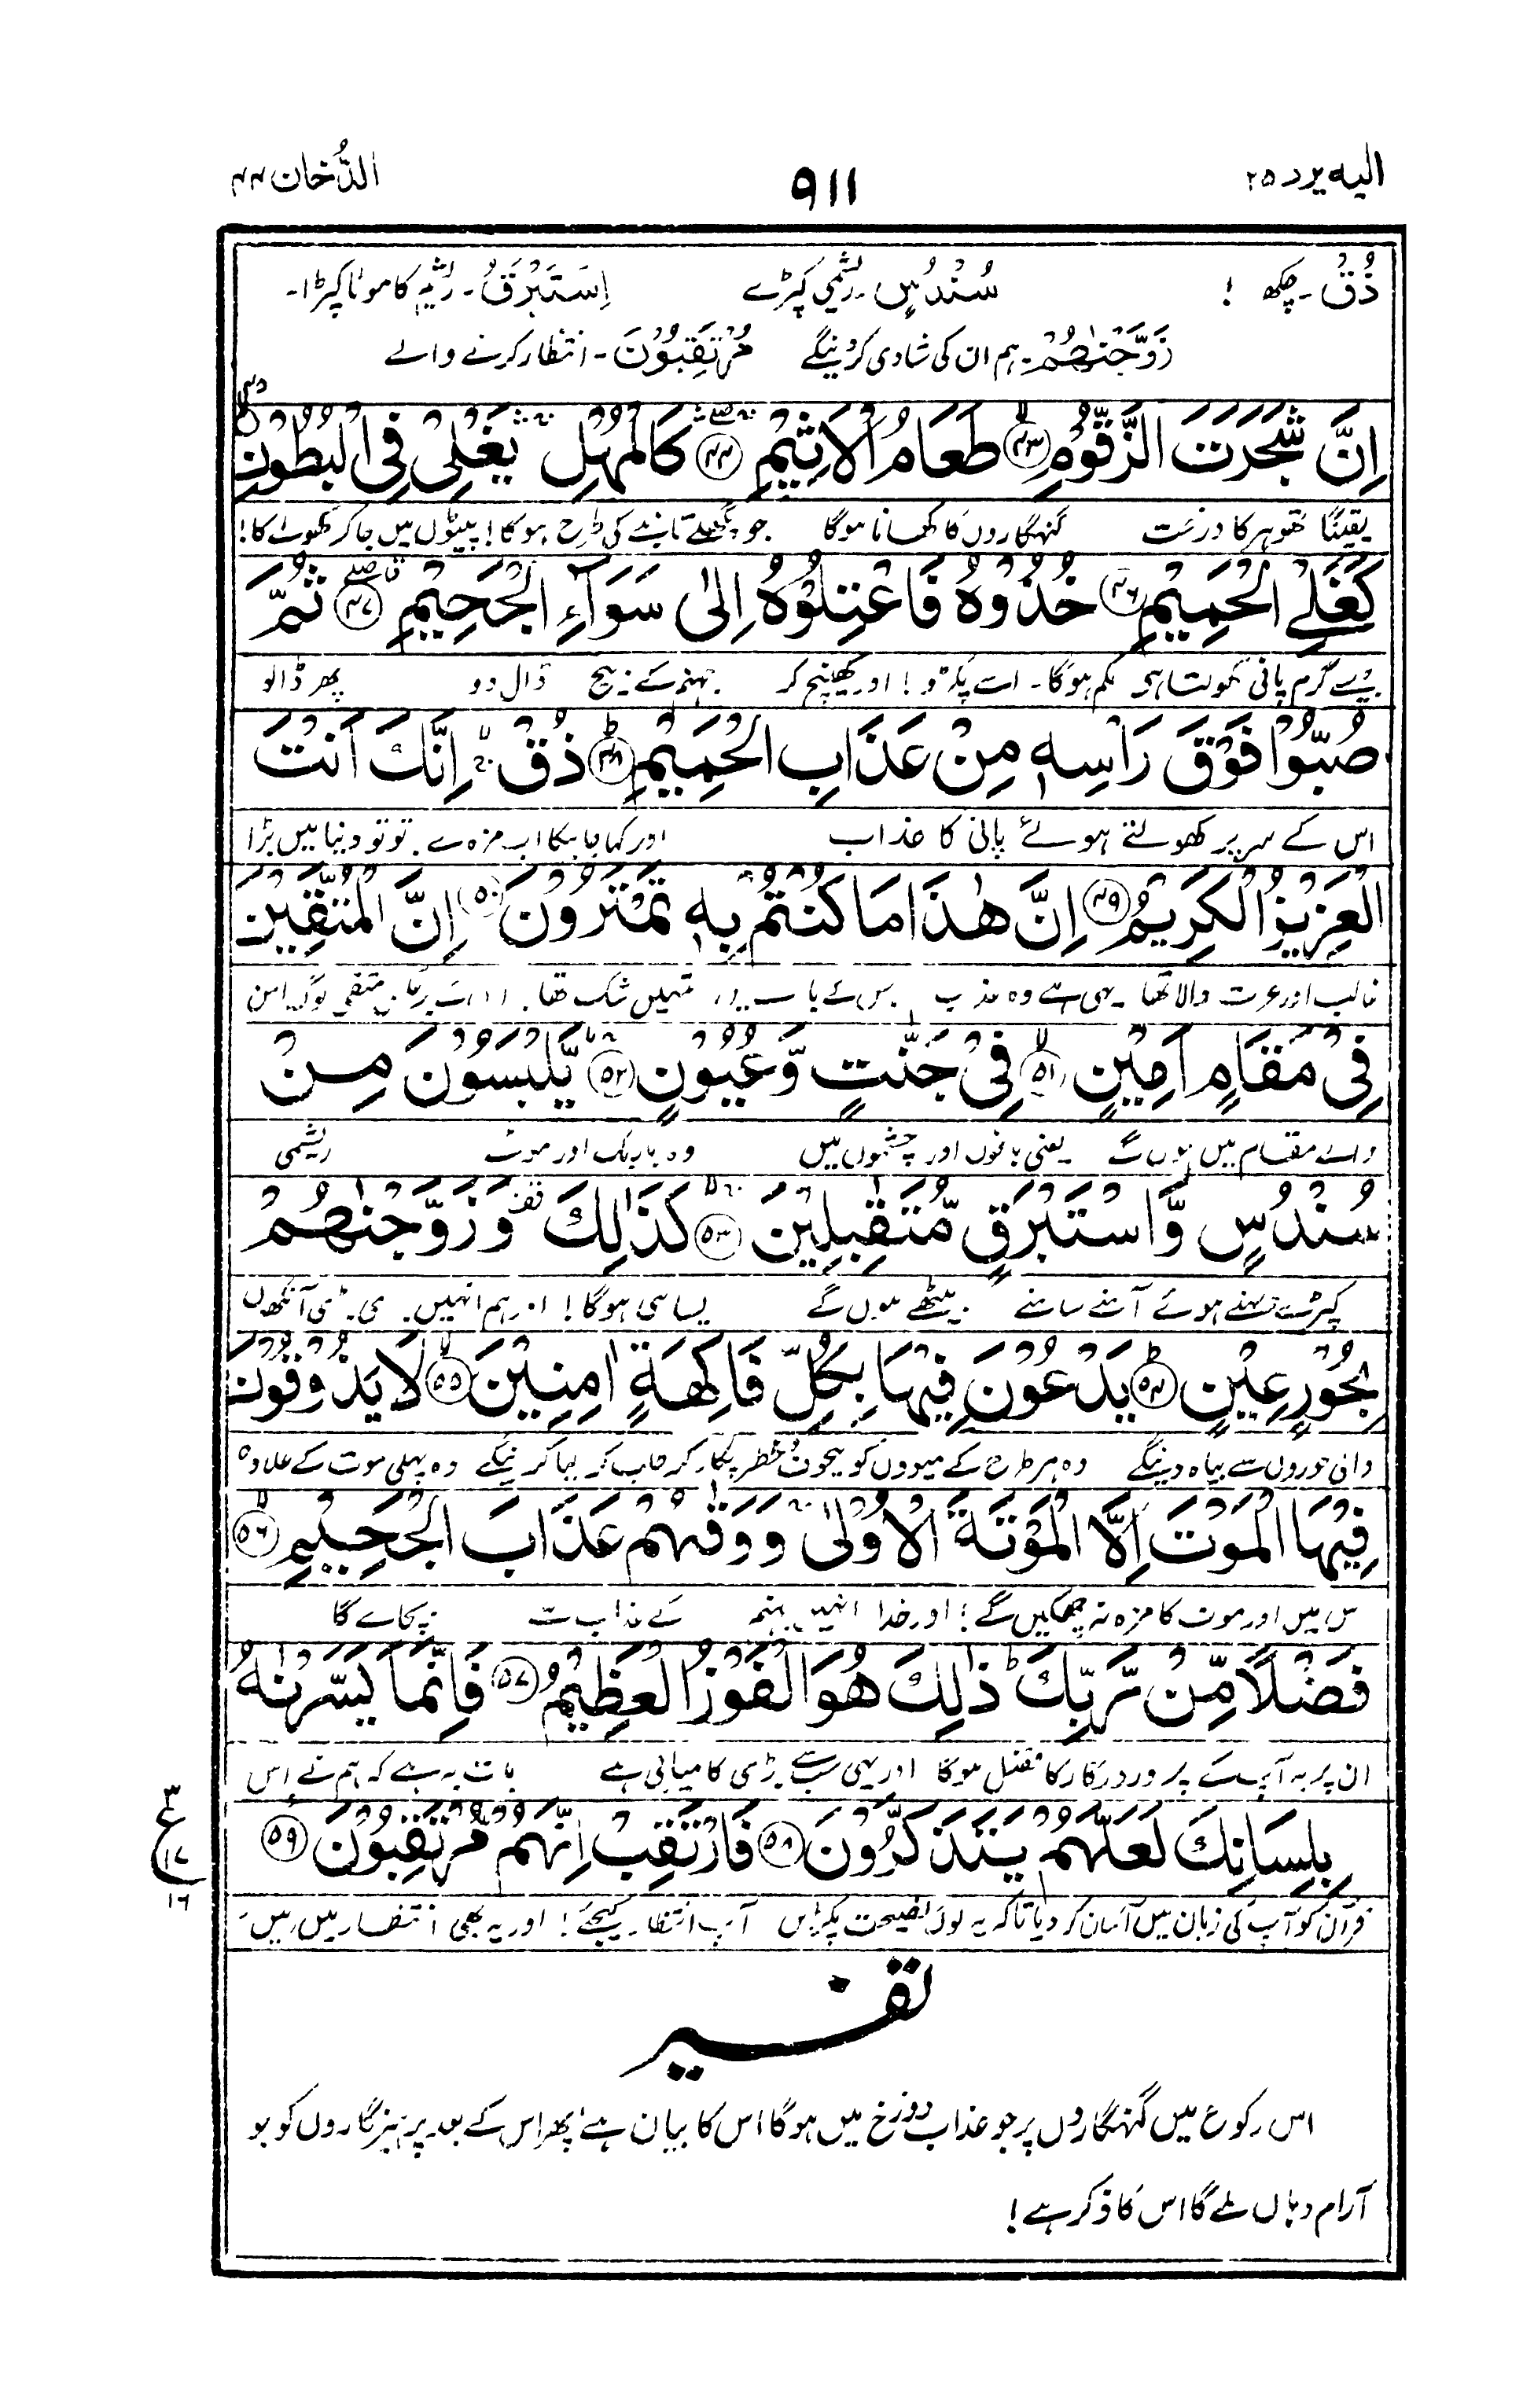 الیه یرد ۲۵
۹۱۱
الدُّخان ۴۴
ذُقْ ۔ چکھ ! سُنْدُسٍ ۔ ریشمی کپڑے اِسْتَبْرَقٌ ۔ ریشم کا موٹا کپڑا ۔
زَوَّجْنٰهُمْ ۔ ہم ان کی شادی کر دینگے مُرْتَقِبُوْنَ ۔ انتظار کرنے والے
اِنَّ شَجَرَتَ الزَّقُّوْمِ ﴿۴۳﴾ طَعَامُ الْاَثِیْمِ ﴿۴۴﴾ کَالْمُهْلِ یَغْلِیْ فِی الْبُطُوْنِ ﴿۴۵﴾
یقیناً تھوہر کا درخت گنہگاروں کا کھانا ہوگا جو پگھلے تانبے کی طرح ہوگا! پیٹوں میں جا کر کھولے گا!
کَغَلْیِ الْحَمِیْمِ ﴿۴۶﴾ خُذُوْهُ فَاعْتِلُوْهُ اِلٰی سَوَآءِ الْجَحِیْمِ ﴿۴۷﴾ ثُمَّ
جیسے گرم پانی کھولتا ہے حکم ہوگا۔ اسے پکڑو! اور کھینچ کر جہنم کے بیچ ڈال دو پھر ڈالو
صُبُّوْا فَوْقَ رَاْسِهٖ مِنْ عَذَابِ الْحَمِیْمِ ﴿۴۸﴾ ذُقْ اِنَّكَ اَنْتَ
اس کے سر پر کھولتے ہوئے پانی کا عذاب اور کہا جائیگا اب مزہ لے تو تو دنیا میں بڑا
الْعَزِیْزُ الْکَرِیْمُ ﴿۴۹﴾ اِنَّ هٰذَا مَا کُنْتُمْ بِهٖ تَمْتَرُوْنَ ﴿۵۰﴾ اِنَّ الْمُتَّقِیْنَ
غالب اور عزت والا تھا یہی ہے وہ عذاب جس کے بارے تمہیں شک تھا۔ متقی لوگ امن
فِیْ مَقَامٍ اَمِیْنٍ ﴿۵۱﴾ فِیْ جَنّٰتٍ وَّعُیُوْنٍ ﴿۵۲﴾ یَّلْبَسُوْنَ مِنْ
والے مقام میں ہوں گے یعنی باغوں اور چشموں میں وہ باریک اور موٹے ریشمی
سُنْدُسٍ وَّاِسْتَبْرَقٍ مُّتَقٰبِلِیْنَ ﴿۵۳﴾ کَذٰلِكَ وَزَوَّجْنٰهُمْ
کپڑے پہنے ہوئے آمنے سامنے بیٹھے ہوں گے ایسا ہی ہوگا! اور ہم انہیں بڑی بڑی آنکھوں
بِحُوْرٍ عِیْنٍ ﴿۵۴﴾ یَدْعُوْنَ فِیْهَا بِکُلِّ فَاکِهَةٍ اٰمِنِیْنَ ﴿۵۵﴾ لَا یَذُوْقُوْنَ
والی حوروں سے بیاہ دینگے وہ ہر طرح کے میووں کو بیخوف خطر پکار کر طلب کر لیا کرینگے وہ پہلی موت کے علاوہ
فِیْهَا الْمَوْتَ اِلَّا الْمَوْتَةَ الْاُوْلٰی وَوَقٰهُمْ عَذَابَ الْجَحِیْمِ ﴿۵۶﴾
اس میں اور موت کا مزہ نہ چکھیں گے! اور خدا انہیں جہنم کے عذاب سے بچائے گا
فَضْلًا مِّنْ رَّبِّكَ ذٰلِكَ هُوَ الْفَوْزُ الْعَظِیْمُ ﴿۵۷﴾ فَاِنَّمَا یَسَّرْنٰهُ
ان پر یہ آپ کے پروردگار کا فضل ہوگا اور یہی سب سے بڑی کامیابی ہے بات یہ ہے کہ ہم نے اس
بِلِسَانِكَ لَعَلَّهُمْ یَتَذَکَّرُوْنَ ﴿۵۸﴾ فَارْتَقِبْ اِنَّهُمْ مُّرْتَقِبُوْنَ ﴿۵۹﴾
۳
ع
۱۷
۱۶
قرآن کو آپ کی زبان میں آسان کر دیا تاکہ یہ لوگ نصیحت پکڑیں آپ انتظار کیجئے! اور یہ بھی انتظار میں ہیں
تفسیر
اس رکوع میں گنہگاروں پر جو عذاب دوزخ میں ہوگا اس کا بیان ہے پھر اس کے بعد پرہیزگاروں کو جو
آرام وہاں ملے گا اس کا ذکر ہے!